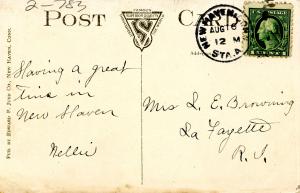 2-783
POST CARD
NEW HAVEN, CONN.
AUG 16
12 M
STA. A
Having a great
time in
New Haven
Nellie
Mrs L. E. Browning
La Fayette
R. I.
PUB. BY EDWARD P. JUDD CO., NEW HAVEN, CONN.